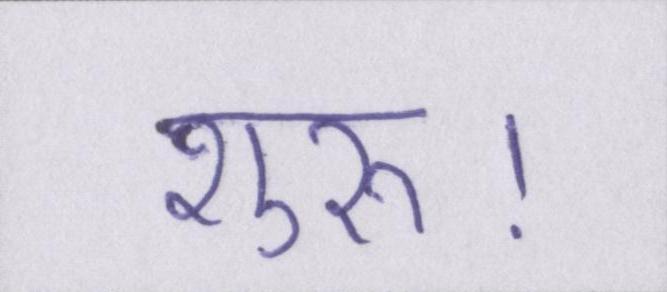 शुरू!